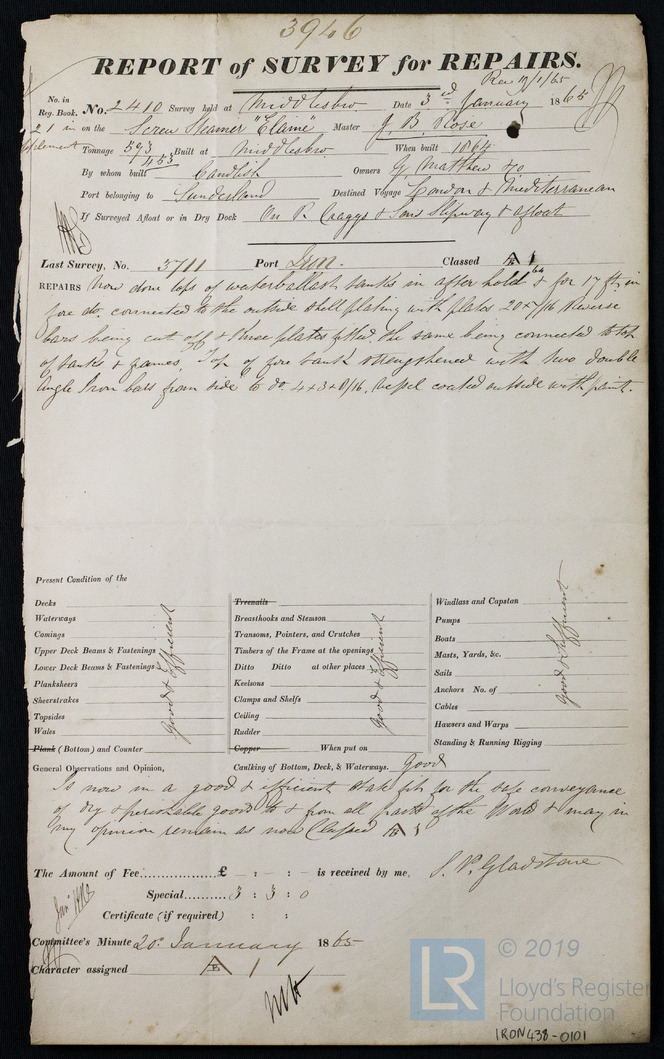 3946
REPORT of SURVEY for REPAIRS.
Rec 19/1/65
No. in Reg. Book.
No. 2410 Survey held at Middlesbro Date 3rd January 1865
21 in on the Screw Steamer "Elaine" Master J. B. Rose
Tonnage 593 Built at Middlesbro When built 1864
453
By whom built Candlish Owners G. Matthew & Co
Port belonging to Sunderland Destined Voyage London & Mediterranean
If Surveyed Afloat or in Dry Dock On P. Craggs & Sons Slipway & afloat
Last Survey, No. 3711 Port Sun. Classed A 1
64
REPAIRS Now done tops of waterballast tanks in after hold & for 17 ft in
fore do. connected to the outside shell plating with plates 20 x 7/16 Reverse
bars being cut off & these plates fitted the same being connected to top
of tanks & frames, Top of fore tank strengthened with two double
angle Iron bars from side to do 4 x 3 x 8/16, Vessel coated outside with paint.
Present Condition of the
Decks
Waterways
Comings
Upper Deck Beams & Fastenings
Lower Deck Beams & Fastenings
Planksheers
Sheerstrakes
Topsides
Wales
Plank (Bottom) and Counter
Good & Efficient
Treenails
Breasthooks and Stemson
Transoms, Pointers, and Crutches
Timbers of the Frame at the openings
Ditto Ditto at other places
Keelsons
Clamps and Shelfs
Ceiling
Rudder
Copper When put on
Good & Efficient
Windlass and Capstan
Pumps
Boats
Masts, Yards, &c.
Sails
Anchors No. of
Cables
Hawsers and Warps
Standing & Running Rigging
Good & Efficient
General Observations and Opinion, Caulking of Bottom, Deck, & Waterways. Good
Is now in a good & efficient state fit for the safe conveyance
of dry & perishable goods to & from all parts of the World & may in
my opinion remain as now Classed A 1
The Amount of Fee £ - : - : - is received by me, J. P. Gladstone
Special 3 : 3 : 0
Certificate (if required) : :
Committee's Minute 20th January 1865
Character assigned A 1
© 2019
LR
Lloyd's Register
Foundation
IRON438-0101